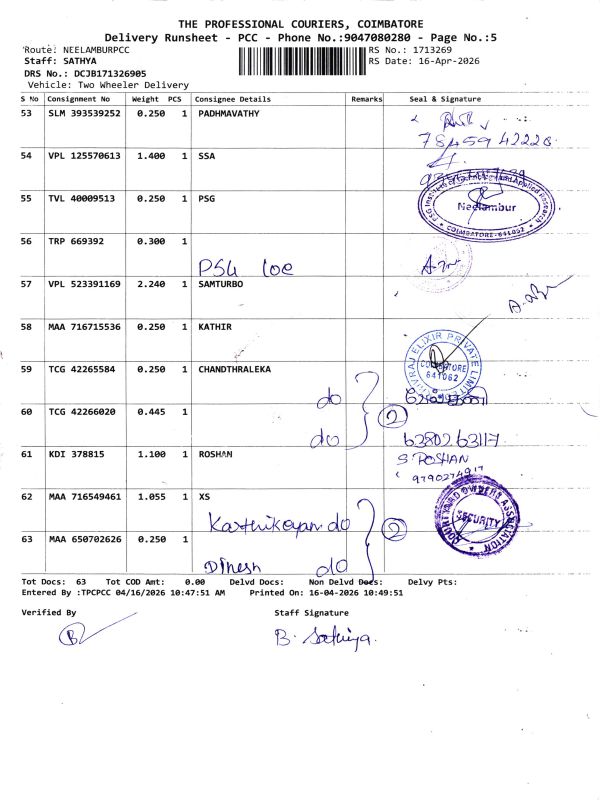 THE PROFESSIONAL COURIERS, COIMBATORE
Delivery Runsheet - PCC - Phone No.:9047080280 - Page No.:5
Route: NEELAMBURPCC
RS No.: 1713269
Staff: SATHYA
RS Date: 16-Apr-2026
DRS No.: DCJB171326905
Vehicle: Two Wheeler Delivery
S No Consignment No Weight PCS Consignee Details Remarks Seal & Signature
53 SLM 393539252 0.250 1 PADHMAVATHY
78459 42226
54 VPL 125570613 1.400 1 SSA
55 TVL 40009513 0.250 1 PSG
PSG Institute of Technology and Applied Research
Neelambur
COIMBATORE-641062
56 TRP 669392 0.300 1
PSG
57 VPL 523391169 2.240 1 SAMTURBO
58 MAA 716715536 0.250 1 KATHIR
ELIXIR PRIVATE LIMITED
COIMBATORE
641062
59 TCG 42265584 0.250 1 CHANDTHRALEKA
do
60 TCG 42266020 0.445 1
2
do
6380263117
61 KDI 378815 1.100 1 ROSHAN
S. ROSHAN
62 MAA 716549461 1.055 1 XS
Karthikeyan do
2
COURTYARD OWNERS ASSOCIATION
SECURITY
63 MAA 650702626 0.250 1
Dinesh do
Tot Docs: 63 Tot COD Amt: 0.00 Delvd Docs: Non Delvd Docs: Delvy Pts:
Entered By :TPCPCC 04/16/2026 10:47:51 AM Printed On: 16-04-2026 10:49:51
Verified By Staff Signature
B. Sathiya.